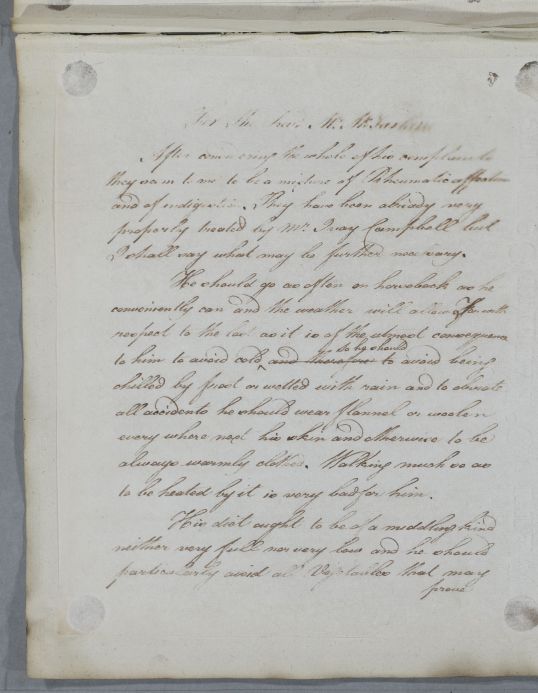 For the Revd Mr Mc
After considering the whole of his complaints
they seem to me to be a mixture of Rheumatic affection
and of indigestion. They have been already very
properly treated by Mr. Ivay Campbell but
I shall say what may be further necessary.
He should go as often on horseback as he
conveniently can and the weather will allow. For with
respect to the last as it is of the utmost consequence
to him to avoid cold and therefore to avoid being
so he should
chilled by frost or wetted with rain and to obviate
all accidents he should wear flannel or woolen
every where next his skin and otherwise to be
always warmly clothed. Walking much so as
to be heated by it is very bad for him.
His diet ought to be of a middling kind
neither very full nor very low and he should
particularly avoid all Vegetables that may
prove